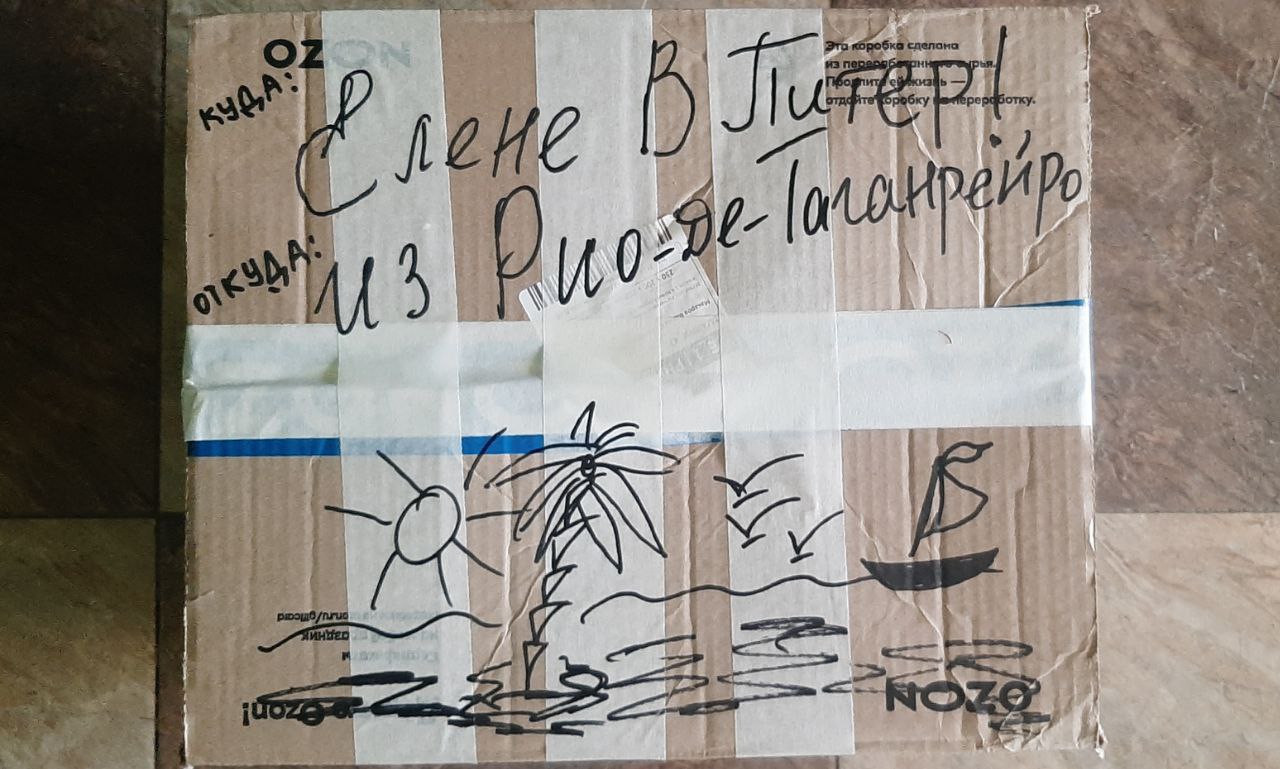 OZON
Эта коробка сделана
из переработанного сырья.
Продлите ей жизнь —
отдайте коробку на переработку.
КУДА:
Елене В Питер!
ОТКУДА:
из Рио-Де-Таганрейро
ozon.ru/giftcard
праздник
Ozon!
OZON